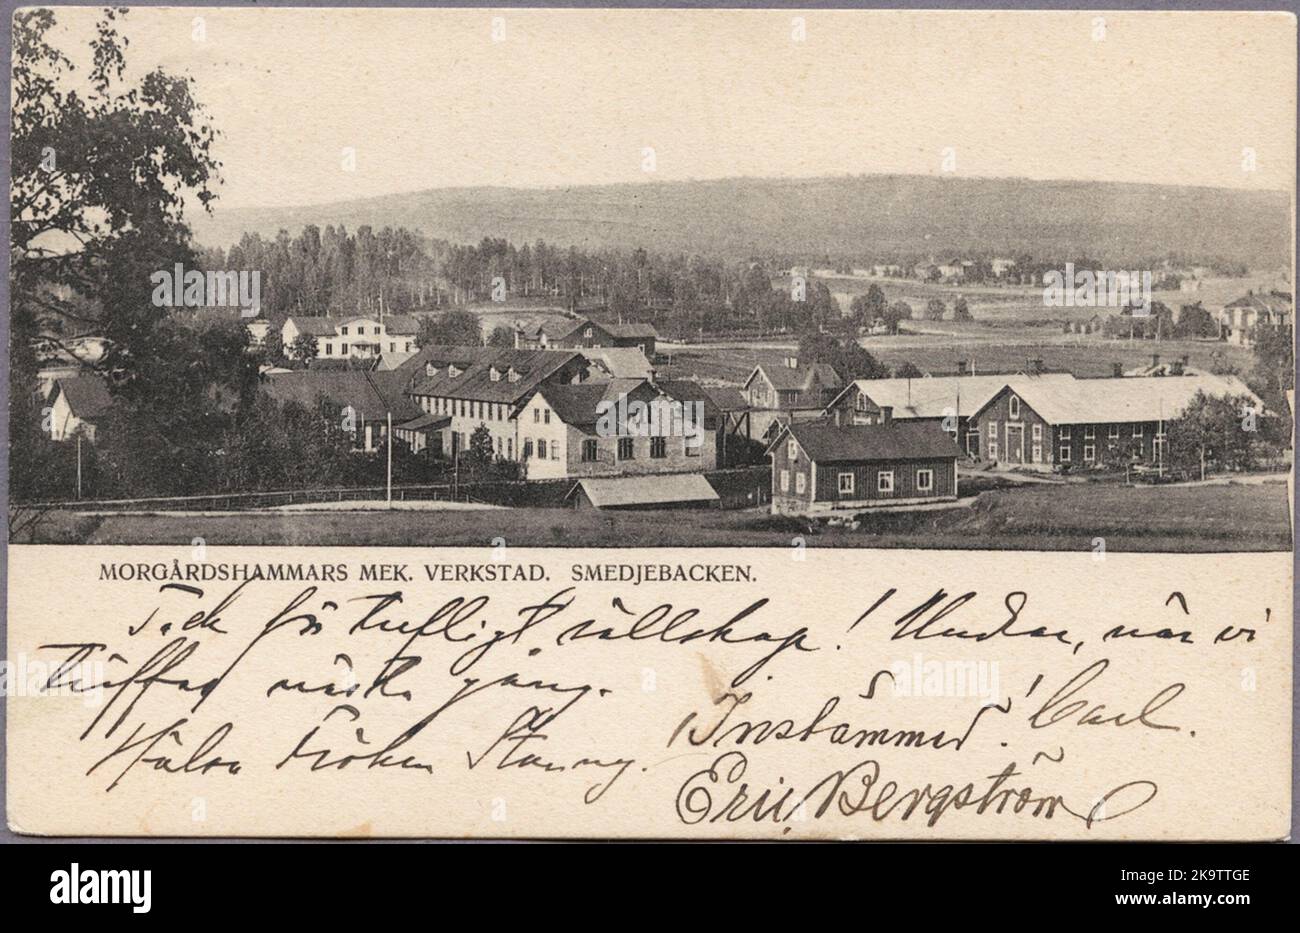 MORGÅRDSHAMMARS MEK. VERKSTAD. SMEDJEBACKEN.
Tack för trefligt sällskap! Undrar, när vi
träffas nästa gång.
Hälsa Fröken Stanny. Carl.
Instämmes!
Eric Bergström
a
alamy
Image ID: 2K9TTGE
www.alamy.com